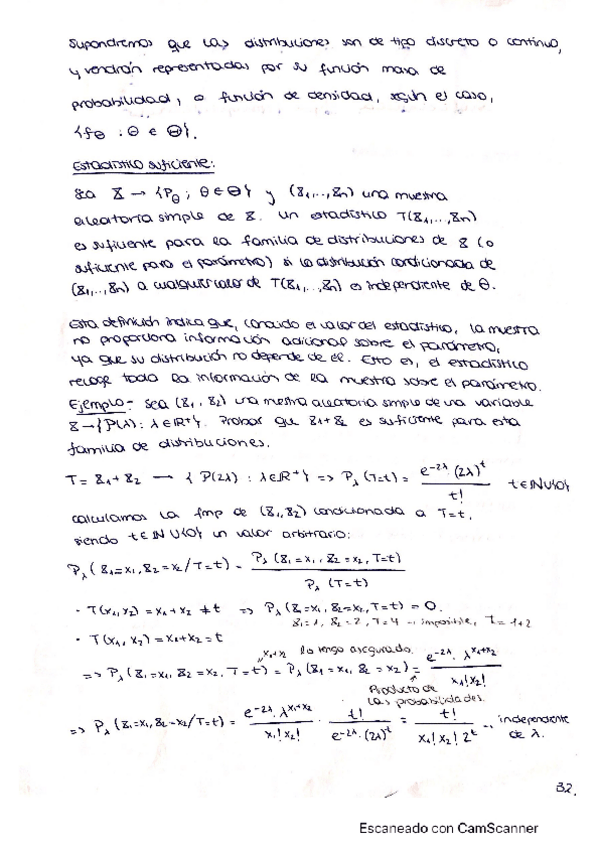 Supondremos que las distribuciones son de tipo discreto o continuo,
y vendrán representadas por su función masa de
probabilidad, o función de densidad, según el caso,
{fθ : θ ∈ Θ}.
Estadístico suficiente:
Sea X → {Pθ ; θ ∈ Θ} y (X1,...,Xn) una muestra
aleatoria simple de X. Un estadístico T(X1,...,Xn)
es suficiente para la familia de distribuciones de X (o
suficiente para el parámetro) si la distribución condicionada de
(X1,...,Xn) a cualquier valor de T(X1,...,Xn) es independiente de θ.
Esta definición indica que, conocido el valor del estadístico, la muestra
no proporciona información adicional sobre el parámetro,
ya que su distribución no depende de él. Esto es, el estadístico
recoge toda la información de la muestra sobre el parámetro.
Ejemplo- Sea (X1, X2) una mestra aleatoria simple de una variable
X→{P(λ): λ∈R+}. Probar que X1+X2 es suficiente para esta
familia de distribuciones.
T = X1+X2 → {P(2λ) : λ∈R+} => Pλ(T=t) = e^-2λ (2λ)^t / t! t∈NU{0}
calculamos la fmp de (X1,X2) condicionada a T=t,
siendo t∈NU{0} un valor arbitrario:
Pλ(X1=x1, X2=x2/T=t) = Pλ(X1=x1, X2=x2, T=t) / Pλ(T=t)
· T(x1,x2) = x1+x2 ≠ t => Pλ(X1=x1, X2=x2, T=t) = 0.
X1=1, X2=2, T=4 → imposible, T=1+2
· T(x1,x2) = x1+x2 = t
x1+x2 lo tengo asegurado.
=> Pλ(X1=x1, X2=x2, T=t) = Pλ(X1=x1, X2=x2) = e^-2λ · λ^x1+x2 / x1!x2!
Producto de
las probabilidades.
=> Pλ(X1=x1, X2=x2/T=t) = e^-2λ · λ^x1+x2 / x1!x2! · t! / e^-2λ·(2λ)^t = t! / x1!x2!2^t → independiente
de λ.
32.
Escaneado con CamScanner